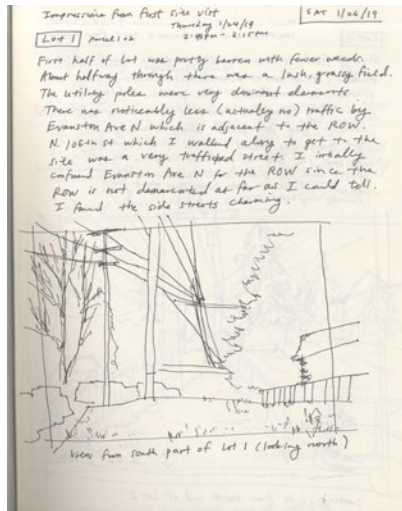 Impressions from first site visit
SAT 1/26/19
Thursday 1/24/19
2:45pm - 3:15pm
Lot 1 parcel 1 o 2
First half of lot was pretty barren with fewer weeds.
About halfway through there was a lush, grassy field.
The utility poles were very dominant elements.
There was noticeably less (actually no) traffic by
Evanston Ave N which is adjacent to the ROW.
N. 106th St which I walked along to get to the
site was a very trafficked street. I initially
confused Evanston Ave N for the ROW since the
ROW is not demarcated as far as I could tell.
I found the side streets charming.
View from south part of Lot 1 (looking north)